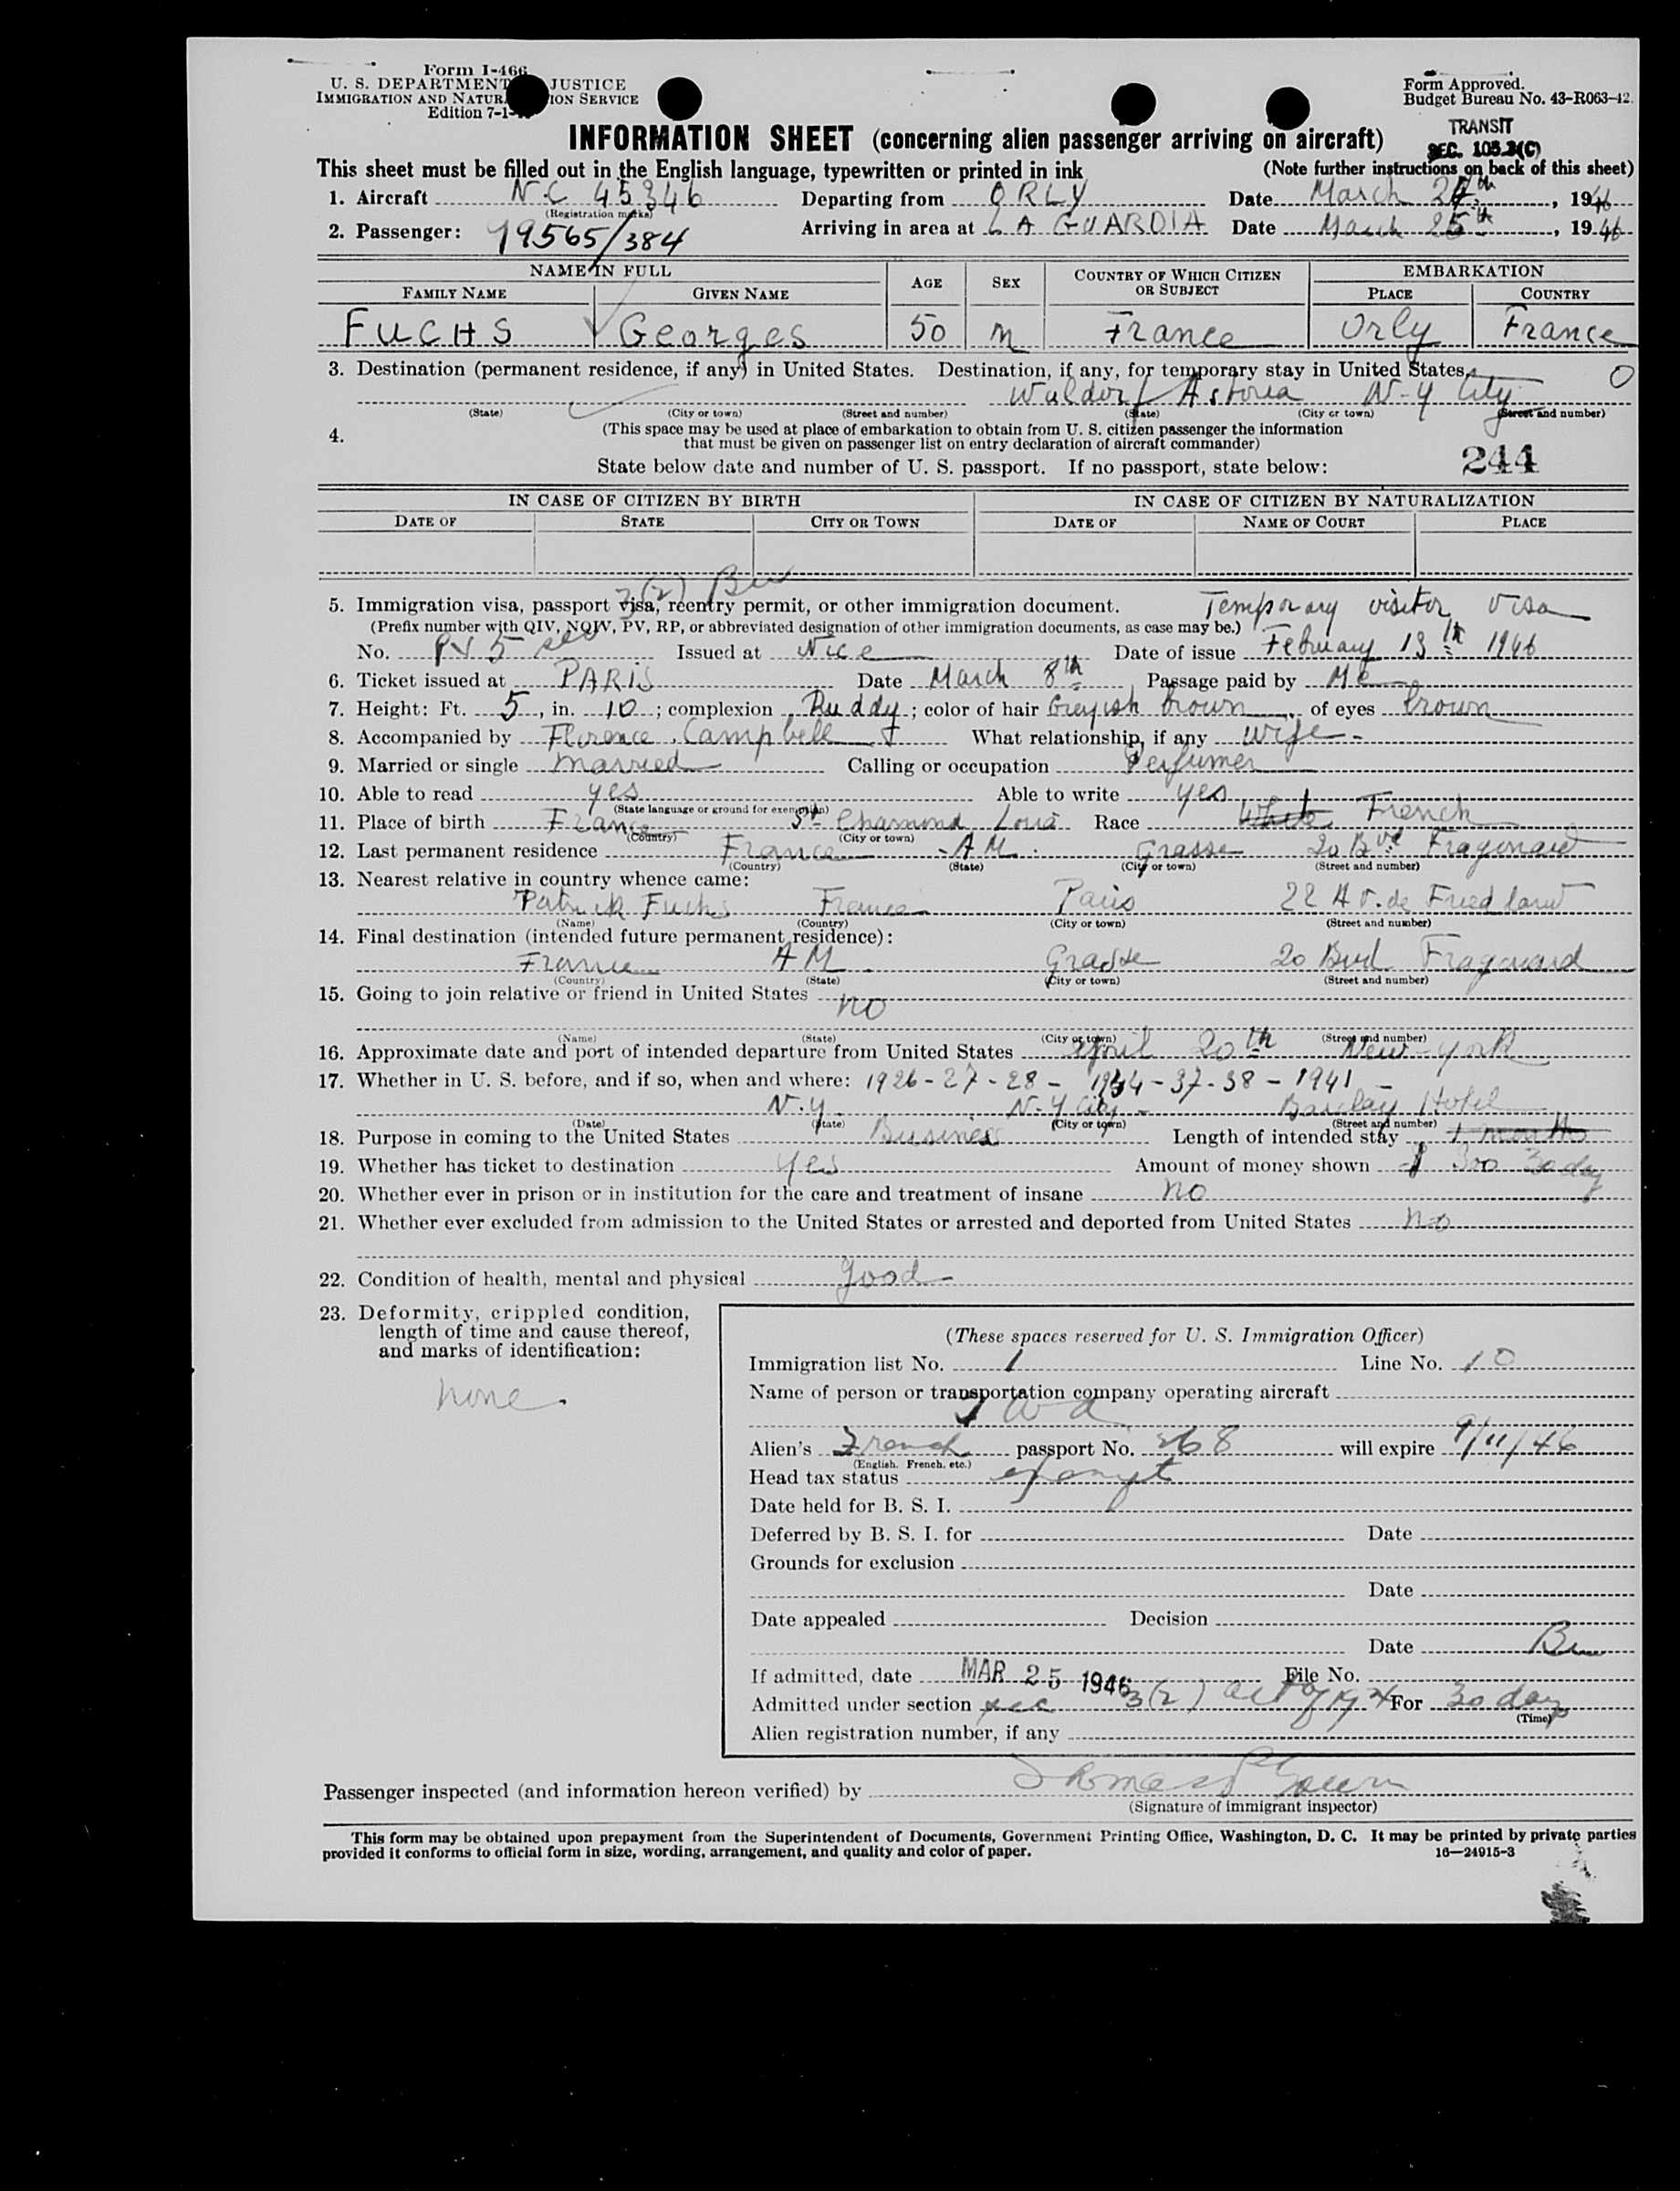 Form I-466
U. S. DEPARTMENT JUSTICE
IMMIGRATION AND NATUR ION SERVICE
Edition 7-1-
Form Approved.
Budget Bureau No. 43-R063-42.
TRANSIT
SEC. 105.3(C)
INFORMATION SHEET (concerning alien passenger arriving on aircraft)
This sheet must be filled out in the English language, typewritten or printed in ink (Note further instructions on back of this sheet)
1. Aircraft NC 45346 Departing from ORLY Date March 24th, 1946
(Registration marks)
2. Passenger: 79565/384 Arriving in area at LA GUARDIA Date March 25th, 1946
NAME IN FULL AGE SEX COUNTRY OF WHICH CITIZEN OR SUBJECT EMBARKATION
FAMILY NAME GIVEN NAME PLACE COUNTRY
FUCHS Georges 50 M France Orly France
3. Destination (permanent residence, if any) in United States. Destination, if any, for temporary stay in United States.
Waldorf Astoria N-Y City 0
(State) (City or town) (Street and number) (State) (City or town) (Street and number)
4. (This space may be used at place of embarkation to obtain from U. S. citizen passenger the information
that must be given on passenger list on entry declaration of aircraft commander)
State below date and number of U. S. passport. If no passport, state below: 244
IN CASE OF CITIZEN BY BIRTH IN CASE OF CITIZEN BY NATURALIZATION
DATE OF STATE CITY OR TOWN DATE OF NAME OF COURT PLACE
3(2)
5. Immigration visa, passport visa, reentry permit, or other immigration document. Temporary visitor Visa
(Prefix number with QIV, NQIV, PV, RP, or abbreviated designation of other immigration documents, as case may be.)
No. PV 5 sec Issued at Nice Date of issue February 13th 1946
6. Ticket issued at PARIS Date March 8th Passage paid by Me
7. Height: Ft. 5, in. 10; complexion Ruddy; color of hair Greyish brown, of eyes brown
8. Accompanied by Florence Campbell F What relationship, if any wife -
9. Married or single married Calling or occupation Perfumer
10. Able to read yes Able to write yes
(State language or ground for exemption)
11. Place of birth France St Chamond Loire Race White French
(Country) (City or town)
12. Last permanent residence France - AM. Grasse 20 Bvd Fragonard
(Country) (State) (City or town) (Street and number)
13. Nearest relative in country whence came:
Patrick Fuchs France Paris 22 Av. de Friedland
(Name) (Country) (City or town) (Street and number)
14. Final destination (intended future permanent residence):
France AM. Grasse 20 Bvd Fragonard
(Country) (State) (City or town) (Street and number)
15. Going to join relative or friend in United States no
(Name) (State) (City or town) (Street and number)
16. Approximate date and port of intended departure from United States April 20th New-York
17. Whether in U. S. before, and if so, when and where: 1926-27-28 - 1934-37-38 - 1941 -
N.Y. N-Y City - Barclay Hotel
(Date) (State) (City or town) (Street and number)
18. Purpose in coming to the United States Business Length of intended stay 1 month
19. Whether has ticket to destination yes Amount of money shown $ 300 30 day
20. Whether ever in prison or in institution for the care and treatment of insane no
21. Whether ever excluded from admission to the United States or arrested and deported from United States no
22. Condition of health, mental and physical good
23. Deformity, crippled condition,
length of time and cause thereof,
and marks of identification:
none.
(These spaces reserved for U. S. Immigration Officer)
Immigration list No. 1 Line No. 10
Name of person or transportation company operating aircraft
TWA
Alien's French passport No. 268 will expire 9/11/46
(English, French, etc.)
Head tax status exempt
Date held for B. S. I.
Deferred by B. S. I. for Date
Grounds for exclusion
Date
Date appealed Decision
Date
If admitted, date MAR 25 1946 File No.
Admitted under section sec 3(2) act of 1924 For 30 days
(Time)
Alien registration number, if any
Passenger inspected (and information hereon verified) by Thomas
(Signature of immigrant inspector)
This form may be obtained upon prepayment from the Superintendent of Documents, Government Printing Office, Washington, D. C. It may be printed by private parties
provided it conforms to official form in size, wording, arrangement, and quality and color of paper. 16—24915-3